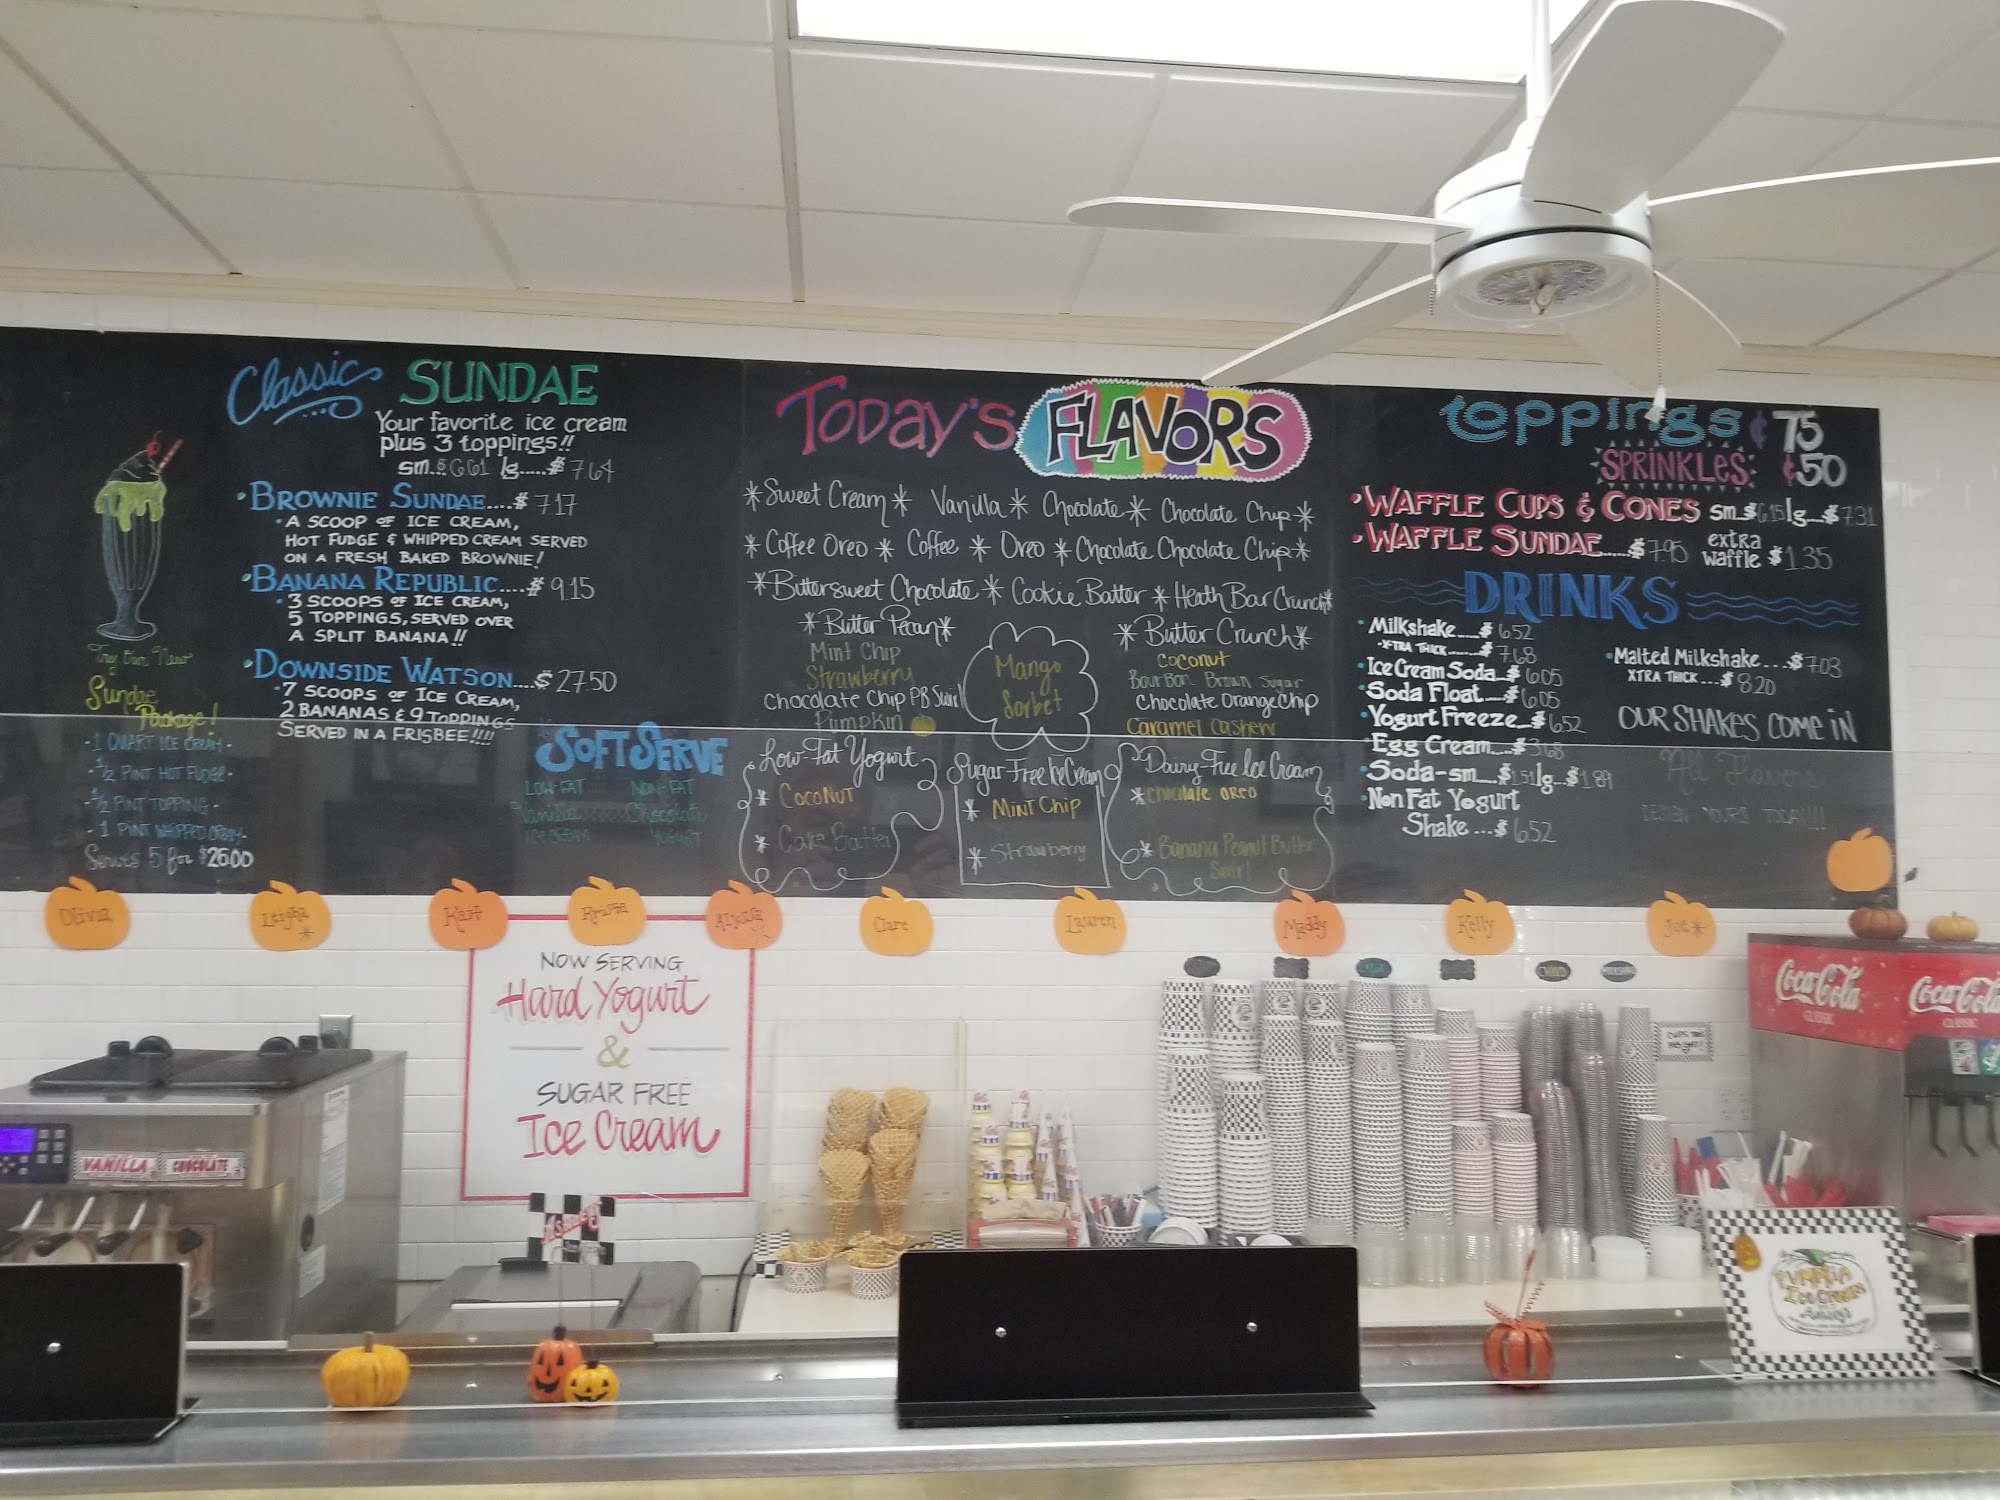 Classic SUNDAE
Your favorite ice cream
plus 3 toppings!!
sm.$6.61 lg.....$7.64
• BROWNIE SUNDAE....$ 7.17
• A SCOOP OF ICE CREAM,
HOT FUDGE & WHIPPED CREAM SERVED
ON A FRESH BAKED BROWNIE!
• BANANA REPUBLIC....$ 9.15
• 3 SCOOPS OF ICE CREAM,
5 TOPPINGS, SERVED OVER
A SPLIT BANANA!!
• DOWNSIDE WATSON....$ 27.50
• 7 SCOOPS OF ICE CREAM,
2 BANANAS & 9 TOPPINGS
SERVED IN A FRISBEE!!!!
Try Our New
Sundae
Package!
- 1 QUART ICE CREAM -
- 1/2 PINT HOT FUDGE -
- 1/2 PINT TOPPING -
- 1 PINT WHIPPED CREAM -
Serves 5 for $26.00
SOFT SERVE
LOW-FAT
Vanilla
ICE CREAM
NON-FAT
Chocolate
YOGURT
TODAY'S FLAVORS
* Sweet Cream * Vanilla * Chocolate * Chocolate Chip *
* Coffee Oreo * Coffee * Oreo * Chocolate Chocolate Chip *
* Bittersweet Chocolate * Cookie Batter * Heath Bar Crunch *
* Butter Pecan *
Mint Chip
Strawberry
Chocolate Chip PB Swirl
Pumpkin
Mango
Sorbet
* Butter Crunch *
Coconut
Bourbon Brown Sugar
Chocolate Orange Chip
Caramel Cashew
Low-Fat Yogurt
* COCONUT
* Cake Batter
Sugar Free Ice Cream
* MINT CHIP
* Strawberry
Dairy-Free Ice Cream
* Chocolate Oreo
* Banana Peanut Butter
Swirl
toppings ¢ 75
SPRINKLES ¢50
• WAFFLE CUPS & CONES sm.$6.15 lg...$7.31
• WAFFLE SUNDAE.....$7.95 extra
waffle $1.35
DRINKS
• Milkshake....$ 6.52
• XTRA THICK........$ 7.68
• Ice Cream Soda...$ 6.05
• Soda Float....$ 6.05
• Yogurt Freeze..$ 6.52
• Egg Cream....$3.68
• Soda-sm....$1.51 lg...$1.89
• Non Fat Yogurt
Shake...$ 6.52
• Malted Milkshake...$7.03
XTRA THICK...$ 8.20
OUR SHAKES COME IN
All Flavors
DESIGN YOURS TODAY!!!!
Olivia
Leigha *
Kait
Krista
Alyssa
Clare
Lauren
Maddy
Kelly
Joe *
NOW SERVING
Hard Yogurt
&
SUGAR FREE
Ice Cream
VANILLA
CHOCOLATE
CHILD
Coca-Cola
CLASSIC
Coca-Cola
CLASSIC
PUMPKIN
Ice Cream